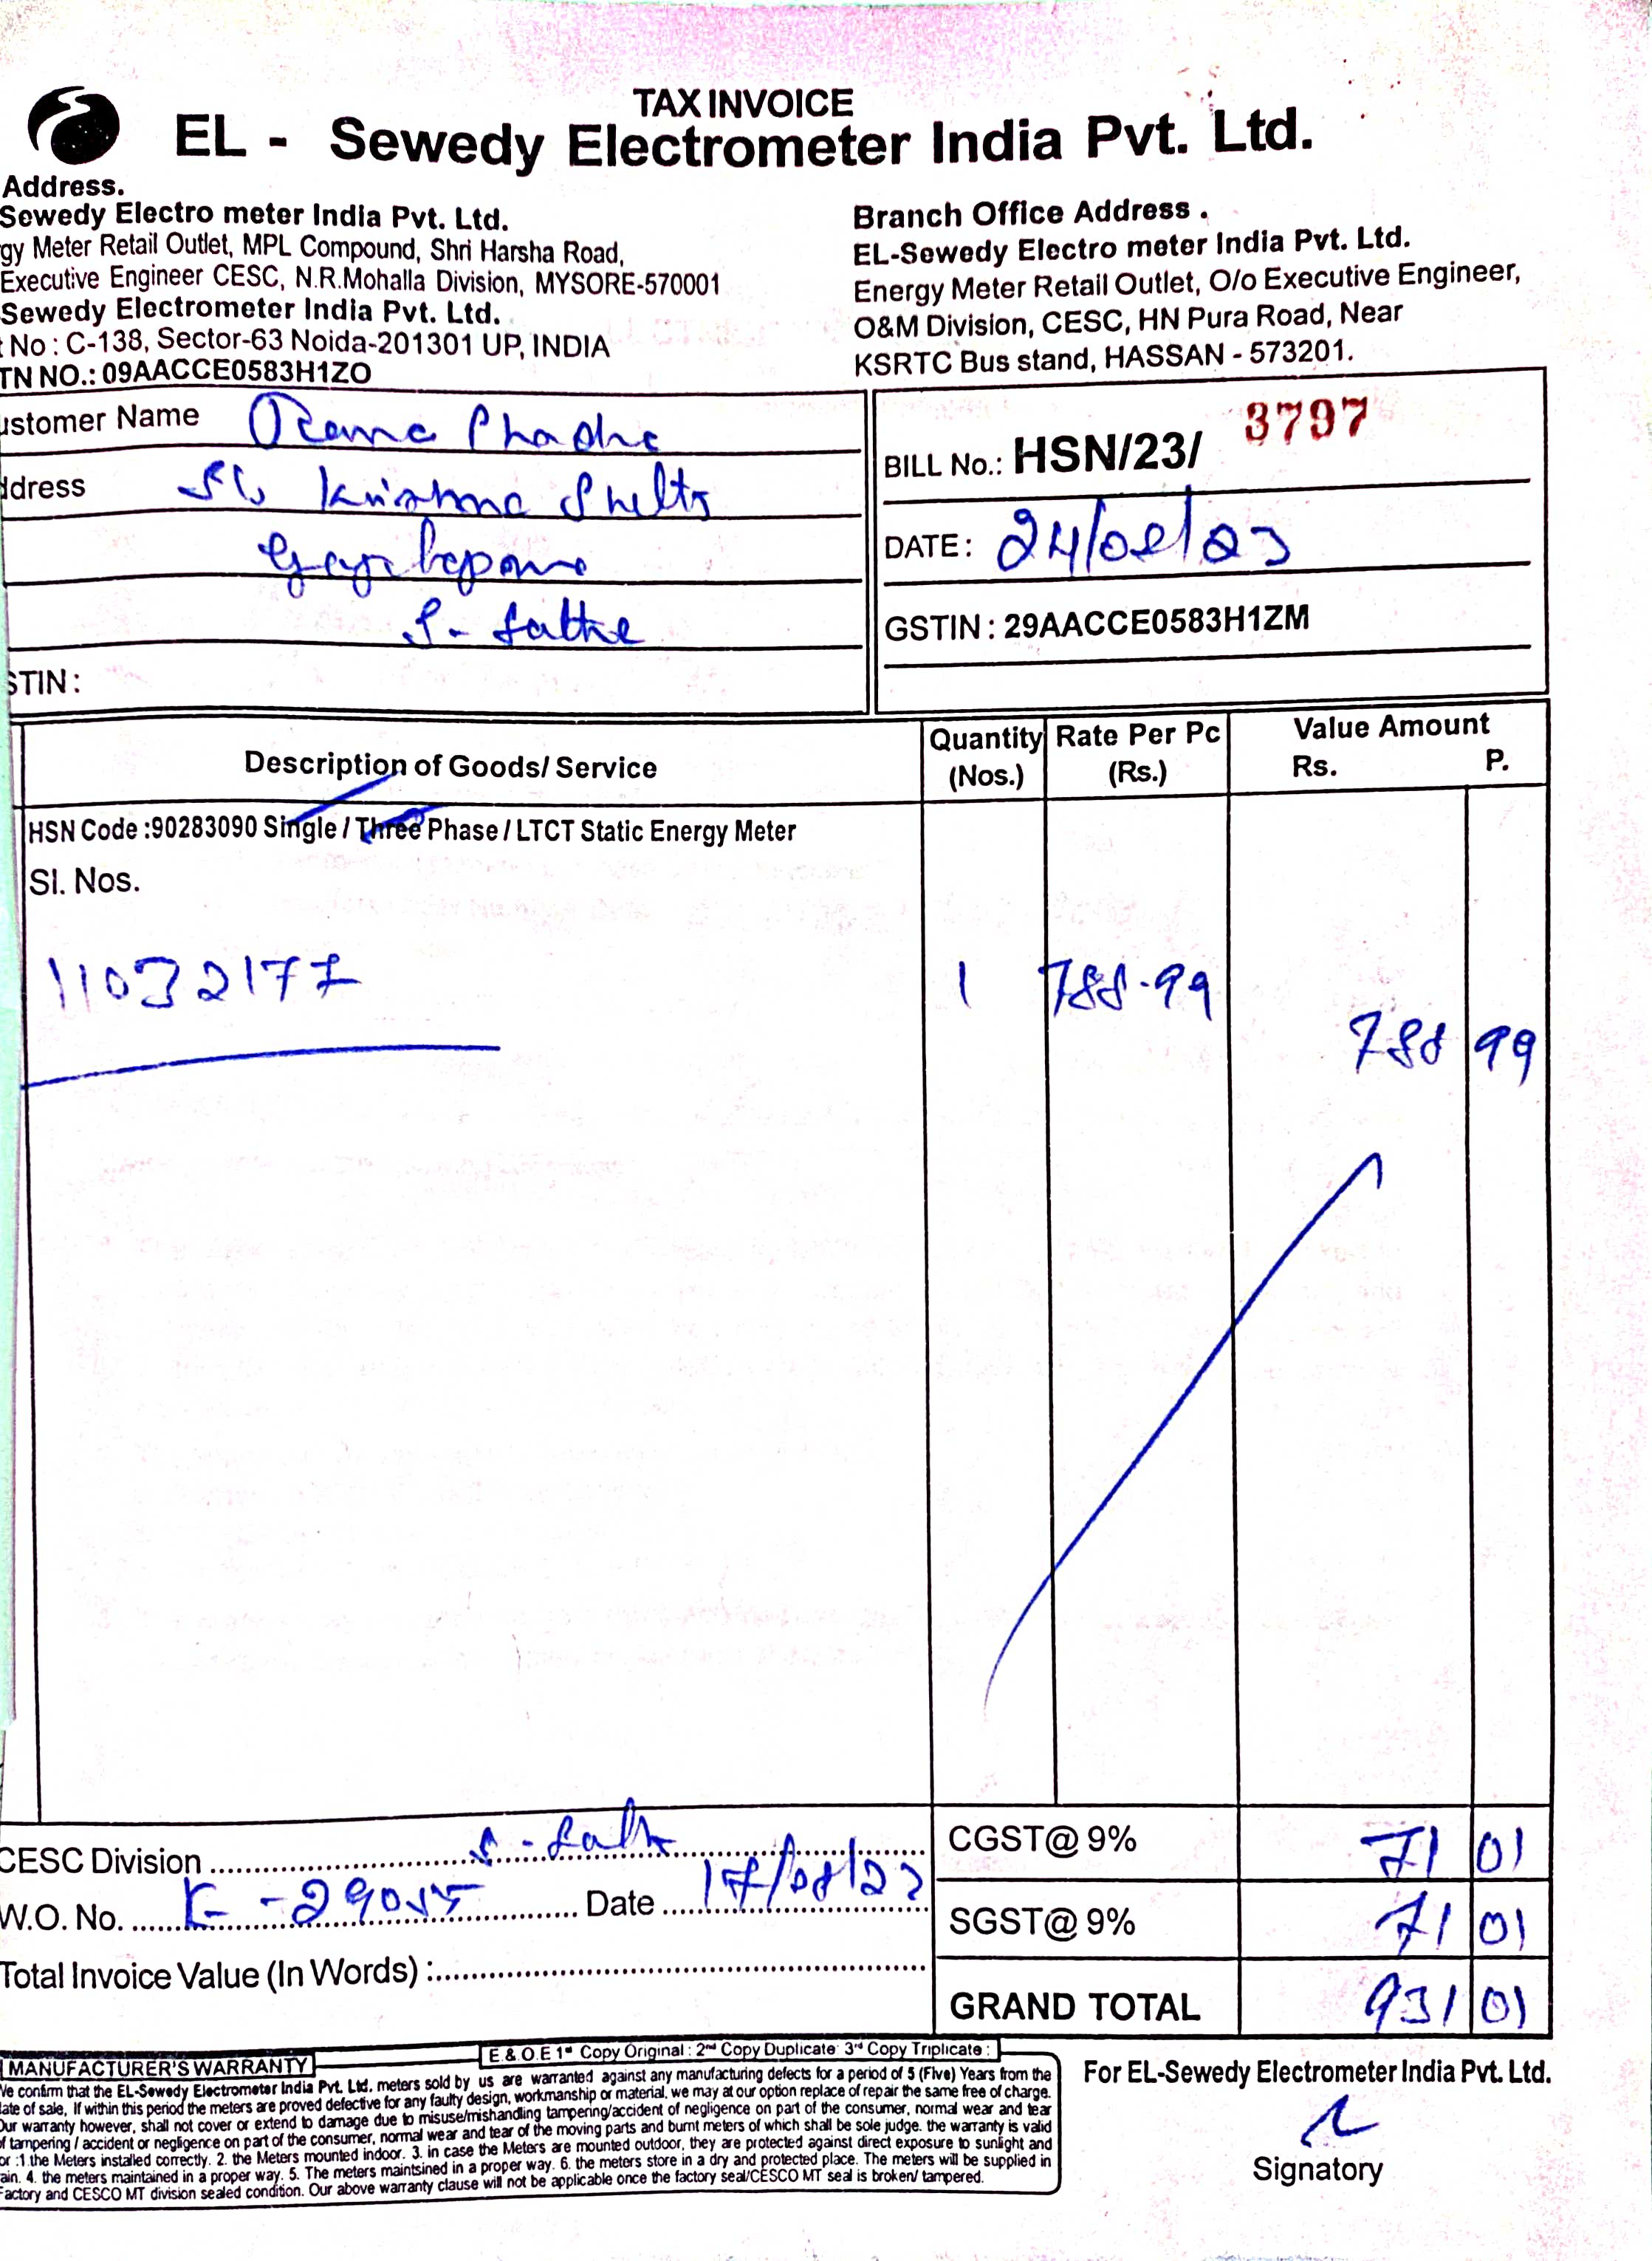 TAX INVOICE
EL - Sewedy Electrometer India Pvt. Ltd.
Address.
Sewedy Electro meter India Pvt. Ltd.
gy Meter Retail Outlet, MPL Compound, Shri Harsha Road,
Executive Engineer CESC, N.R.Mohalla Division, MYSORE-570001
Sewedy Electrometer India Pvt. Ltd.
No : C-138, Sector-63 Noida-201301 UP, INDIA
TN NO.: 09AACCE0583H1ZO
Branch Office Address .
EL-Sewedy Electro meter India Pvt. Ltd.
Energy Meter Retail Outlet, O/o Executive Engineer,
O&M Division, CESC, HN Pura Road, Near
KSRTC Bus stand, HASSAN - 573201.
ustomer Name
ddress Krishna
STIN :
BILL No.: HSN/23/ 3797
DATE : 24/08/23
GSTIN : 29AACCE0583H1ZM
Description of Goods/ Service
Quantity (Nos.)
Rate Per Pc (Rs.)
Value Amount
Rs. P.
HSN Code :90283090 Single / Three Phase / LTCT Static Energy Meter
Sl. Nos.
11032177 1 788.99
788 99
CESC Division
W.O. No. Date 17/08/23
Total Invoice Value (In Words) :
CGST@ 9% 71 01
SGST@ 9% 71 01
GRAND TOTAL 931 01
E & O.E 1st Copy Original : 2nd Copy Duplicate 3rd Copy Triplicate :
MANUFACTURER'S WARRANTY
We confirm that the EL-Sewedy Electrometer India Pvt. Ltd. meters sold by us are warranted against any manufacturing defects for a period of 5 (Five) Years from the
ate of sale, If within this period the meters are proved defective for any faulty design, workmanship or material, we may at our option replace of repair the same free of charge.
Our warranty however, shall not cover or extend to damage due to misuse/mishandling tampering/accident of negligence on part of the consumer, normal wear and tear
f tampering / accident or negligence on part of the consumer, normal wear and tear of the moving parts and burnt meters of which shall be sole judge. the warranty is valid
or :1.the Meters installed correctly. 2. the Meters mounted indoor. 3. in case the Meters are mounted outdoor, they are protected against direct exposure to sunlight and
ain. 4. the meters maintained in a proper way. 5. The meters maintsined in a proper way. 6. the meters store in a dry and protected place. The meters will be supplied in
Factory and CESCO MT division sealed condition. Our above warranty clause will not be applicable once the factory seal/CESCO MT seal is broken/ tampered.
For EL-Sewedy Electrometer India Pvt. Ltd.
Signatory